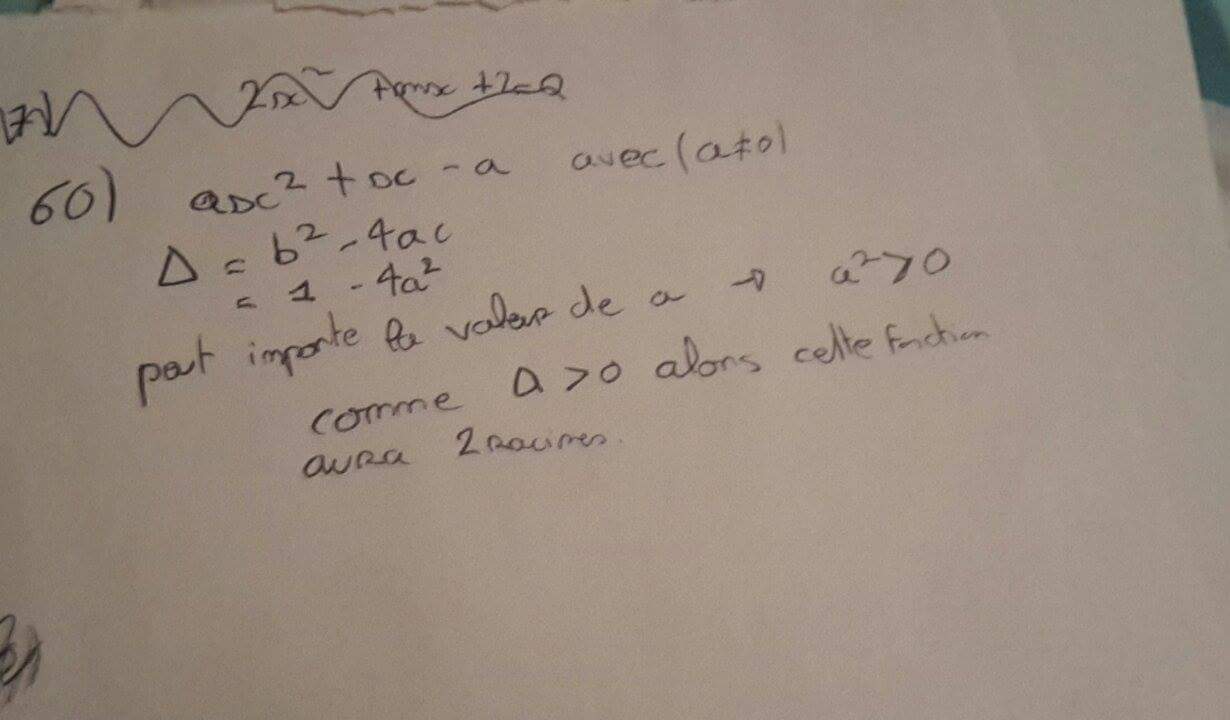 2x² + mx + 2 = 0
60) ax² + x - a avec (a≠0)
Δ = b² - 4ac
= 1 - 4a²
peut importe la valeur de a → a² > 0
comme Δ > 0 alors cette fonction
aura 2 racines.